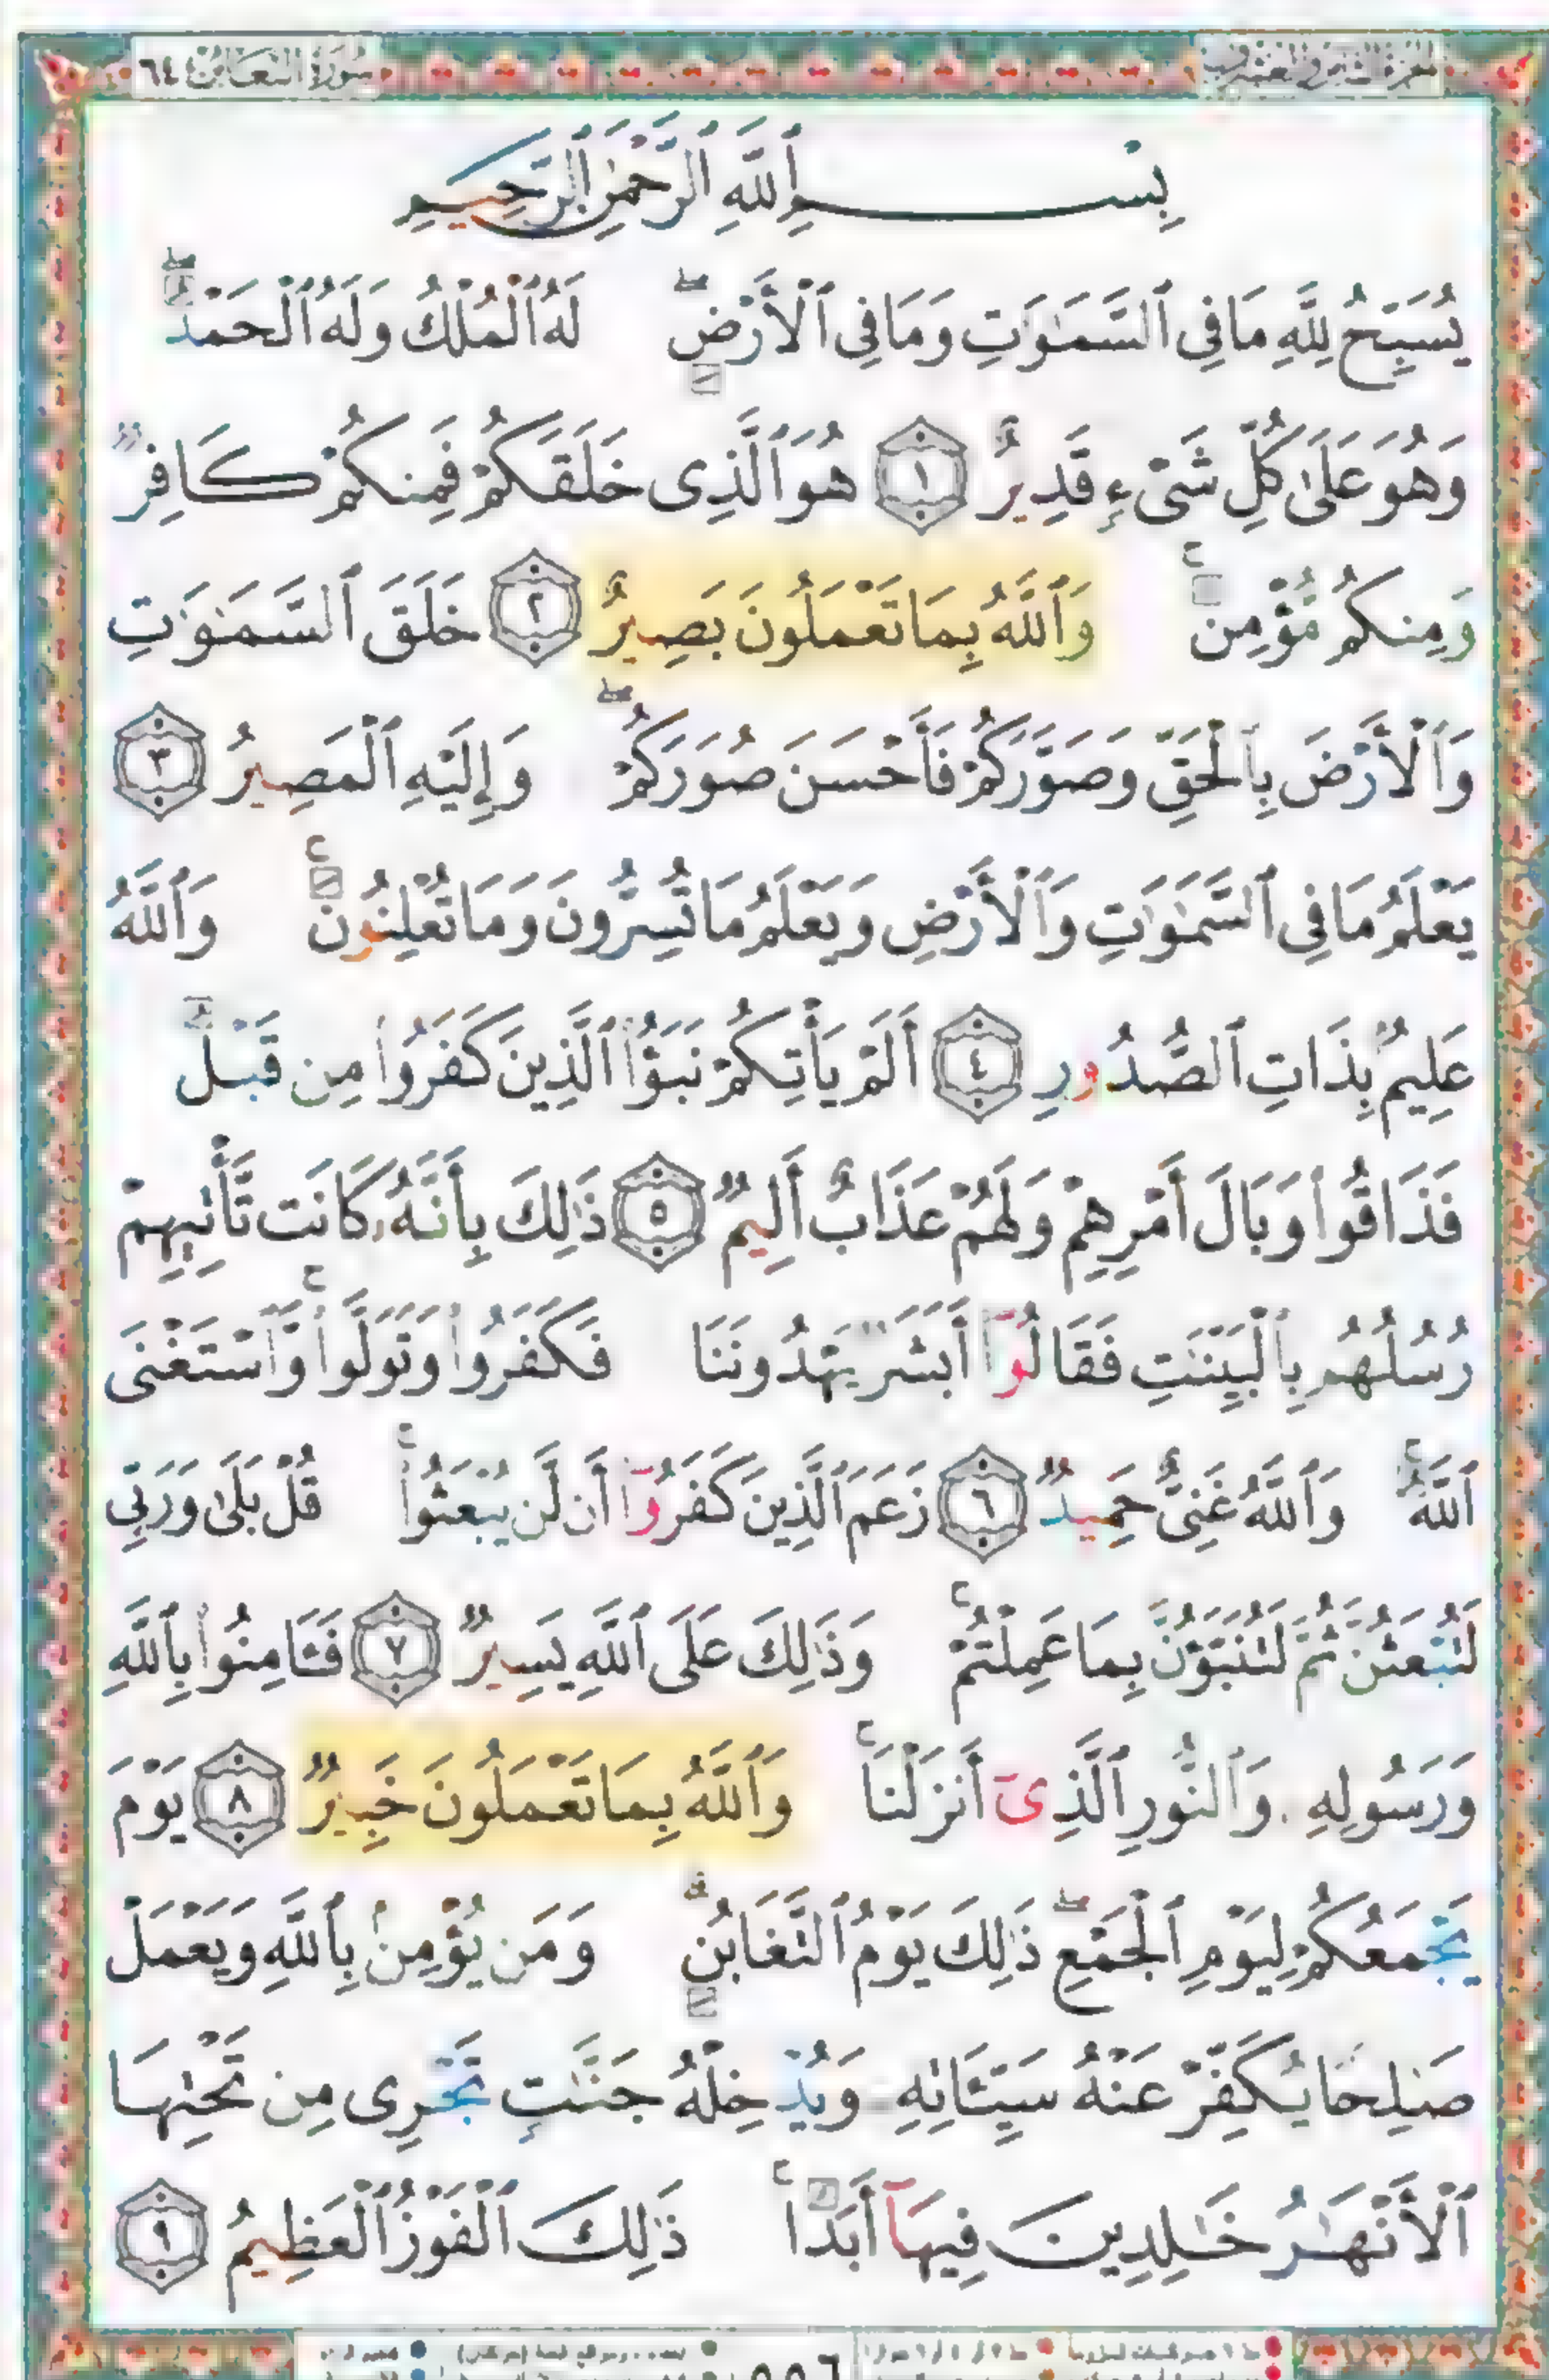 سورة التغابن ٦٤
بِسْمِ ٱللَّهِ ٱلرَّحْمَٰنِ ٱلرَّحِيمِ
يُسَبِّحُ لِلَّهِ مَا فِى ٱلسَّمَٰوَٰتِ وَمَا فِى ٱلْأَرْضِ ۖ لَهُ ٱلْمُلْكُ وَلَهُ ٱلْحَمْدُ ۖ
وَهُوَ عَلَىٰ كُلِّ شَىْءٍ قَدِيرٌ ١ هُوَ ٱلَّذِى خَلَقَكُمْ فَمِنكُمْ كَافِرٌ
وَمِنكُم مُّؤْمِنٌ ۚ وَٱللَّهُ بِمَا تَعْمَلُونَ بَصِيرٌ ٢ خَلَقَ ٱلسَّمَٰوَٰتِ
وَٱلْأَرْضَ بِٱلْحَقِّ وَصَوَّرَكُمْ فَأَحْسَنَ صُوَرَكُمْ ۖ وَإِلَيْهِ ٱلْمَصِيرُ ٣
يَعْلَمُ مَا فِى ٱلسَّمَٰوَٰتِ وَٱلْأَرْضِ وَيَعْلَمُ مَا تُسِرُّونَ وَمَا تُعْلِنُونَ ۚ وَٱللَّهُ
عَلِيمٌۢ بِذَاتِ ٱلصُّدُورِ ٤ أَلَمْ يَأْتِكُمْ نَبَؤُا۟ ٱلَّذِينَ كَفَرُوا۟ مِن قَبْلُ
فَذَاقُوا۟ وَبَالَ أَمْرِهِمْ وَلَهُمْ عَذَابٌ أَلِيمٌ ٥ ذَٰلِكَ بِأَنَّهُۥ كَانَت تَّأْتِيهِمْ
رُسُلُهُم بِٱلْبَيِّنَٰتِ فَقَالُوٓا۟ أَبَشَرٌ يَهْدُونَنَا فَكَفَرُوا۟ وَتَوَلَّوا۟ ۚ وَّٱسْتَغْنَى
ٱللَّهُ ۚ وَٱللَّهُ غَنِىٌّ حَمِيدٌ ٦ زَعَمَ ٱلَّذِينَ كَفَرُوٓا۟ أَن لَّن يُبْعَثُوا۟ ۚ قُلْ بَلَىٰ وَرَبِّى
لَتُبْعَثُنَّ ثُمَّ لَتُنَبَّؤُنَّ بِمَا عَمِلْتُمْ ۚ وَذَٰلِكَ عَلَى ٱللَّهِ يَسِيرٌ ٧ فَـَٔامِنُوا۟ بِٱللَّهِ
وَرَسُولِهِۦ وَٱلنُّورِ ٱلَّذِىٓ أَنزَلْنَا ۚ وَٱللَّهُ بِمَا تَعْمَلُونَ خَبِيرٌ ٨ يَوْمَ
يَجْمَعُكُمْ لِيَوْمِ ٱلْجَمْعِ ۖ ذَٰلِكَ يَوْمُ ٱلتَّغَابُنِ ۗ وَمَن يُؤْمِنۢ بِٱللَّهِ وَيَعْمَلْ
صَٰلِحًا يُكَفِّرْ عَنْهُ سَيِّـَٔاتِهِۦ وَيُدْخِلْهُ جَنَّٰتٍ تَجْرِى مِن تَحْتِهَا
ٱلْأَنْهَٰرُ خَٰلِدِينَ فِيهَآ أَبَدًا ۚ ذَٰلِكَ ٱلْفَوْزُ ٱلْعَظِيمُ ٩
٥٥٦